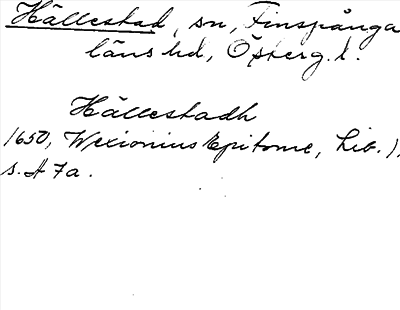 Hällestad, sn, Finspånga
läns hd, Österg. l.
Hällestadh
1650, Wexionius Epitome, Lib. 1.
s. A 7a.